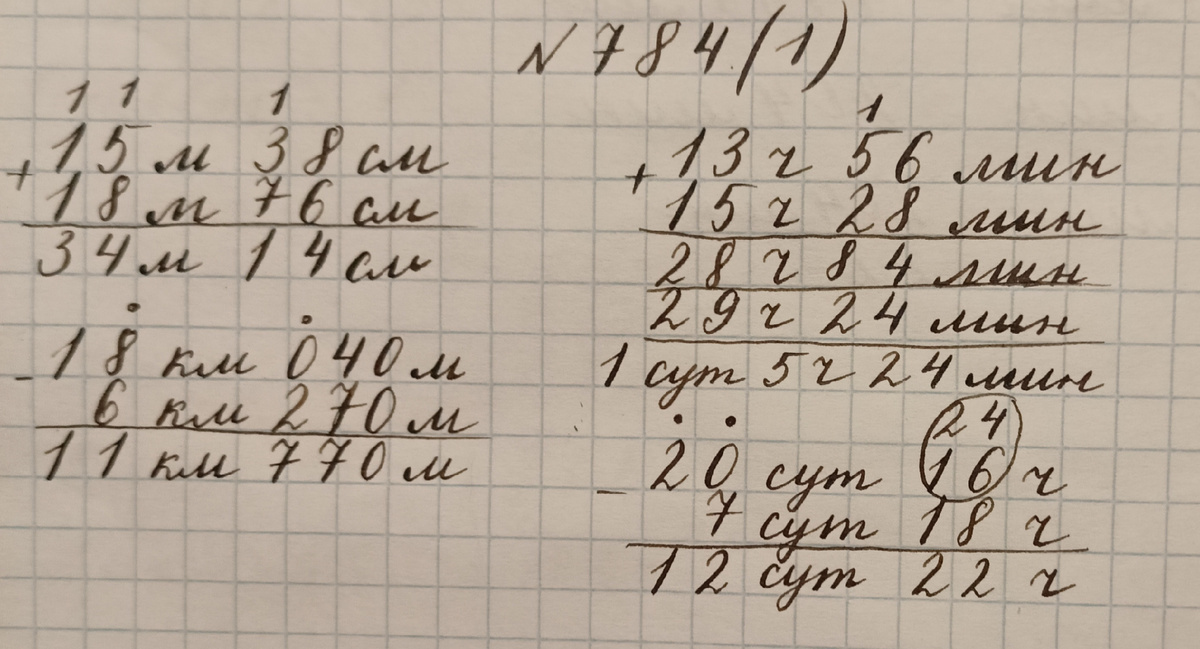 N 784 (1)
1 1 1
+ 15 м 38 см
18 м 76 см
34 м 14 см
- 18 км 040 м
6 км 270 м
11 км 770 м
1
+ 13 ч 56 мин
15 ч 28 мин
28 ч 84 мин
29 ч 24 мин
1 сут 5 ч 24 мин
24
- 20 сут 16 ч
7 сут 18 ч
12 сут 22 ч